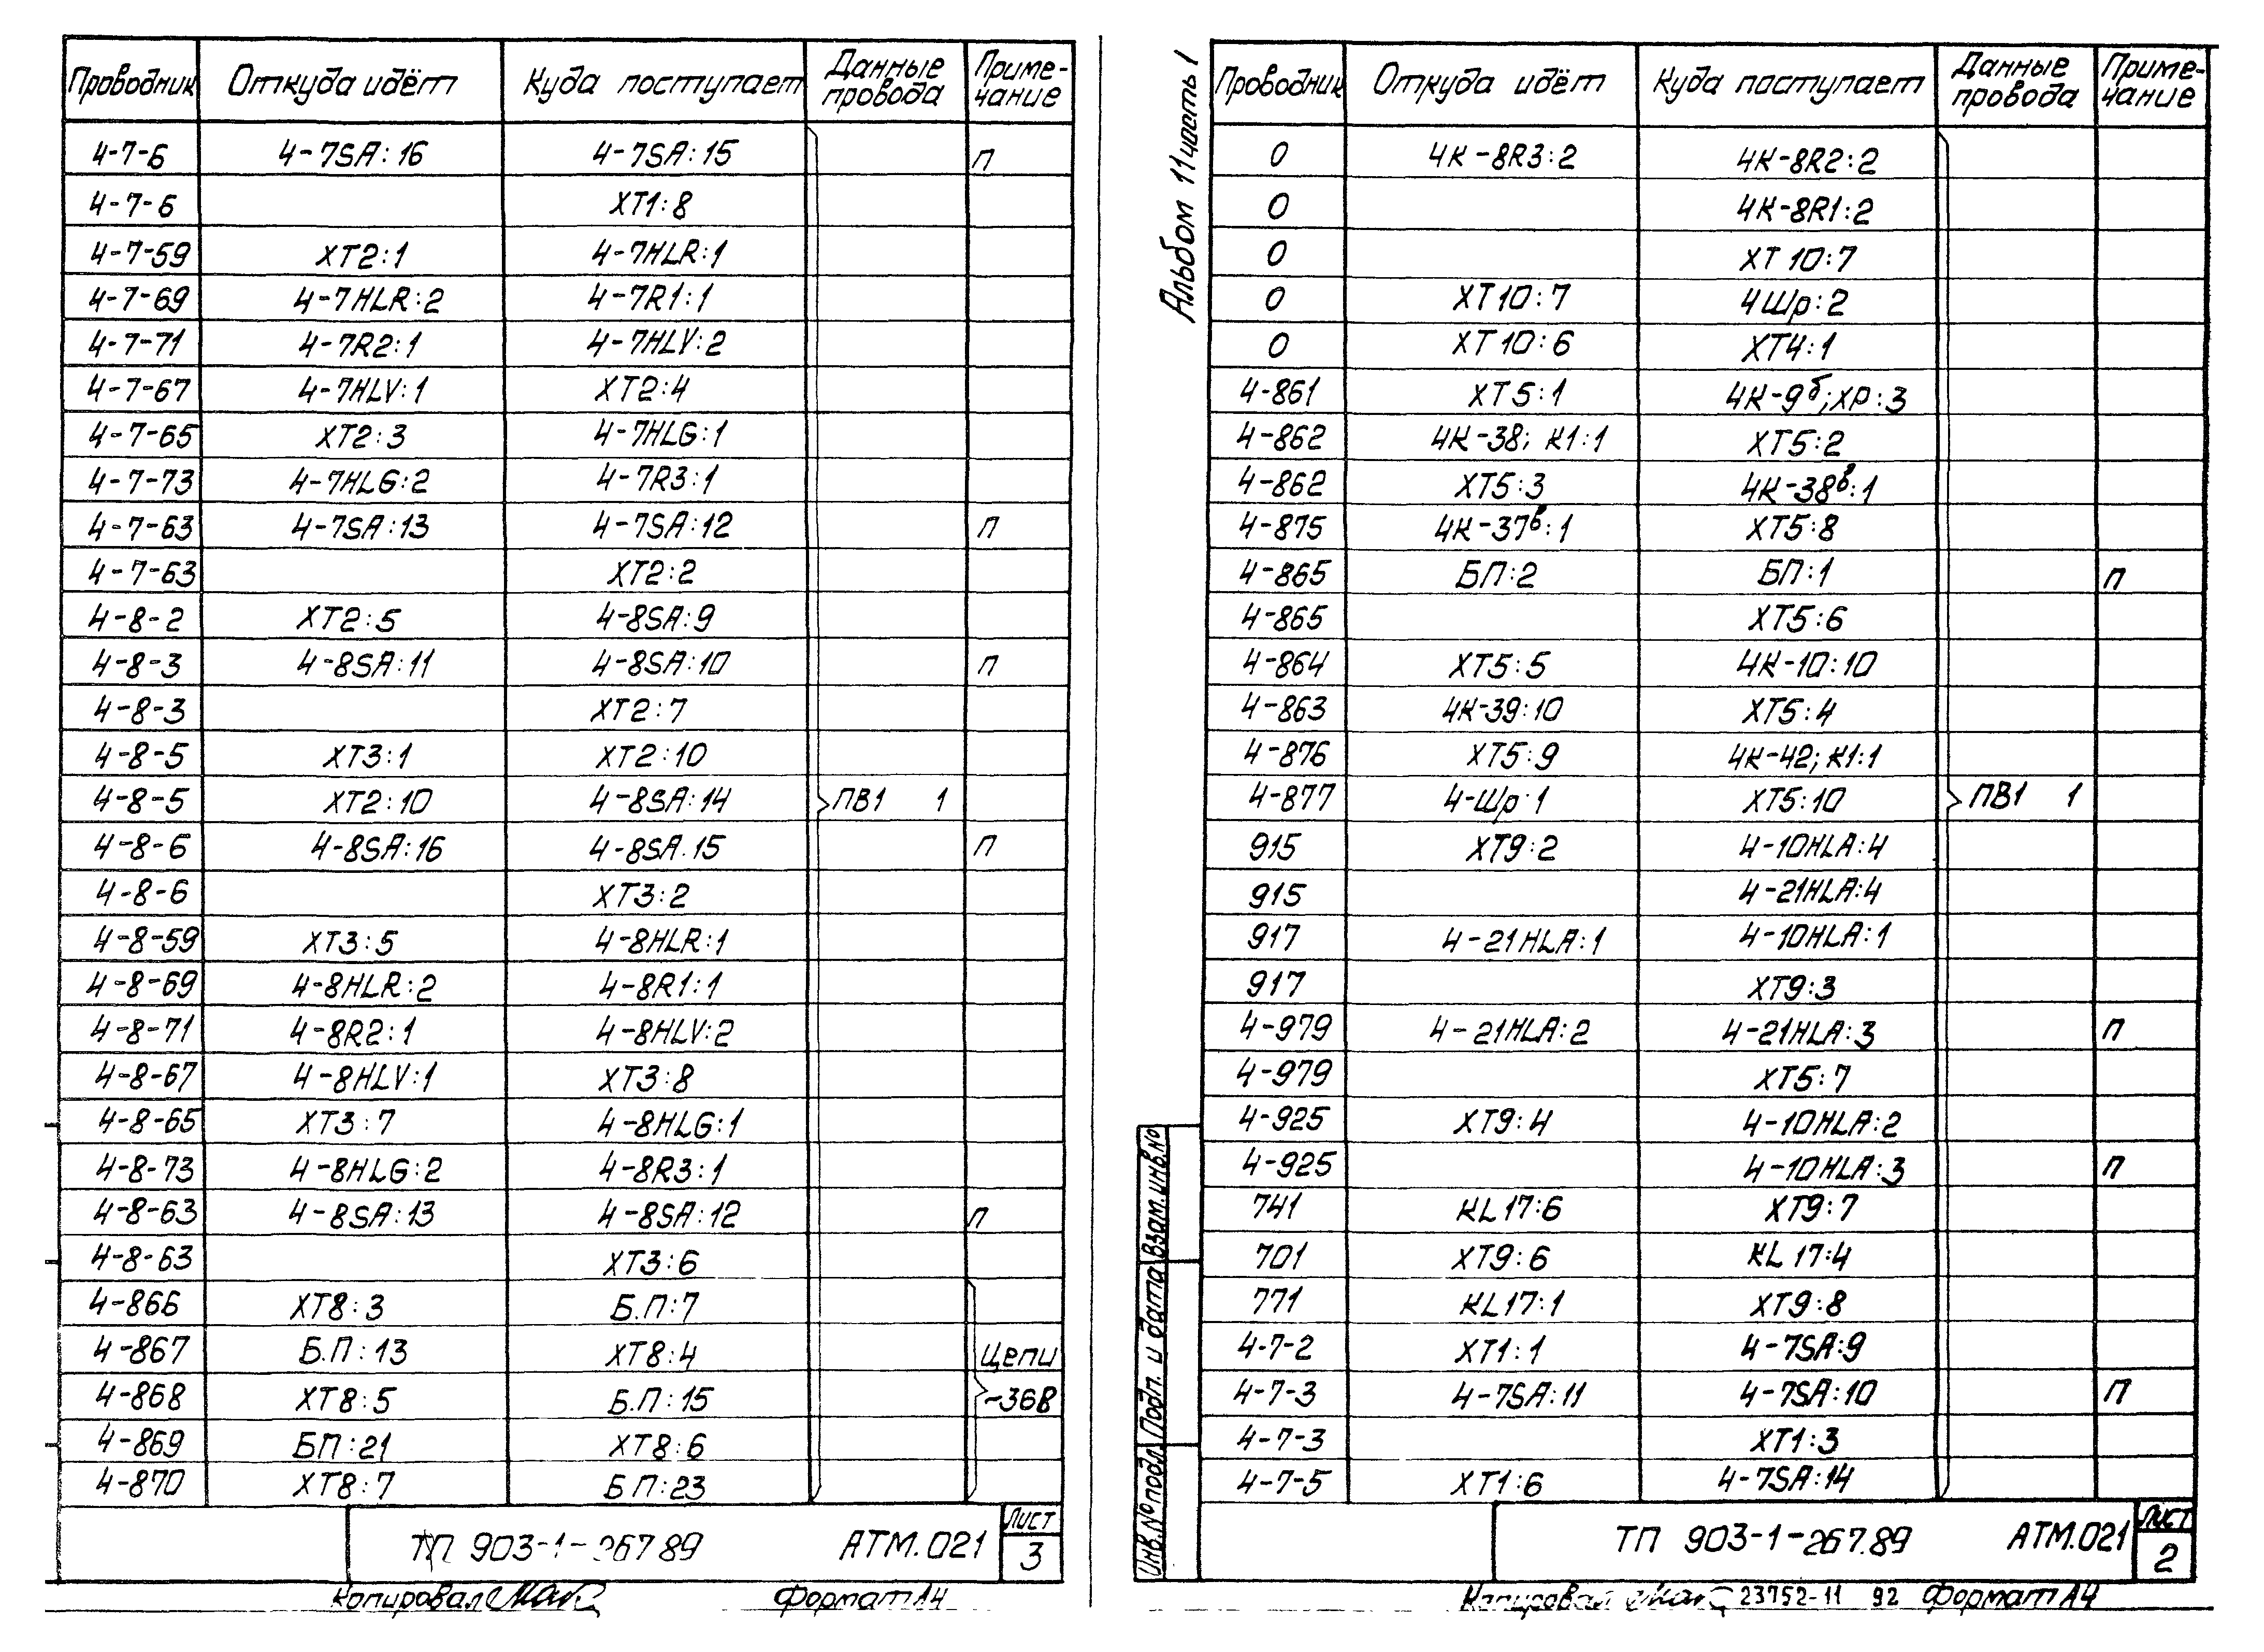 Проводник Откуда идёт Куда поступает Данные провода Приме-чание
4-7-6 4-7SA:16 4-7SA:15 П
4-7-6 XT1:8
4-7-59 XT2:1 4-7HLR:1
4-7-69 4-7HLR:2 4-7R1:1
4-7-71 4-7R2:1 4-7HLV:2
4-7-67 4-7HLV:1 XT2:4
4-7-65 XT2:3 4-7HLG:1
4-7-73 4-7HLG:2 4-7R3:1
4-7-63 4-7SA:13 4-7SA:12 П
4-7-63 XT2:2
4-8-2 XT2:5 4-8SA:9
4-8-3 4-8SA:11 4-8SA:10 П
4-8-3 XT2:7
4-8-5 XT3:1 XT2:10
4-8-5 XT2:10 4-8SA:14 ПВ1 1
4-8-6 4-8SA:16 4-8SA.15 П
4-8-6 XT3:2
4-8-59 XT3:5 4-8HLR:1
4-8-69 4-8HLR:2 4-8R1:1
4-8-71 4-8R2:1 4-8HLV:2
4-8-67 4-8HLV:1 XT3:8
4-8-65 XT3:7 4-8HLG:1
4-8-73 4-8HLG:2 4-8R3:1
4-8-63 4-8SA:13 4-8SA:12 П
4-8-63 XT3:6
4-866 XT8:3 Б.П:7
4-867 Б.П:13 XT8:4 Цепи
4-868 XT8:5 Б.П:15 ~36В
4-869 БП:21 XT8:6
4-870 XT8:7 Б.П:23
ТП 903-1-267 89 АТМ.021 Лист 3
Копировал Формат А4
Альбом 11 часть 1
Проводник Откуда идёт Куда поступает Данные провода Приме-чание
0 4К-8R3:2 4К-8R2:2
0 4К-8R1:2
0 XT10:7
0 XT10:7 4Шр:2
0 XT10:6 XT4:1
4-861 XT5:1 4К-9б;ХР:3
4-862 4К-38; К1:1 XT5:2
4-862 XT5:3 4К-38в:1
4-875 4К-37в:1 XT5:8
4-865 БП:2 БП:1 П
4-865 XT5:6
4-864 XT5:5 4К-10:10
4-863 4К-39:10 XT5:4
4-876 XT5:9 4К-42;К1:1
4-877 4-Шр·1 XT5:10 ПВ1 1
915 XT9:2 4-10HLA:4
915 4-21HLA:4
917 4-21HLA:1 4-10HLA:1
917 XT9:3
4-979 4-21HLA:2 4-21HLA:3 П
4-979 XT5:7
4-925 XT9:4 4-10HLA:2
4-925 4-10HLA:3 П
741 KL17:6 XT9:7
701 XT9:6 KL17:4
771 KL17:1 XT9:8
4-7-2 XT1:1 4-7SA:9
4-7-3 4-7SA:11 4-7SA:10 П
4-7-3 XT1:3
4-7-5 XT1:6 4-7SA:14
Инв.№подл. Подп. и дата Взам.инв.№
ТП 903-1-267.89 АТМ.021 Лист 2
Копировал 23752-11 92 Формат А4